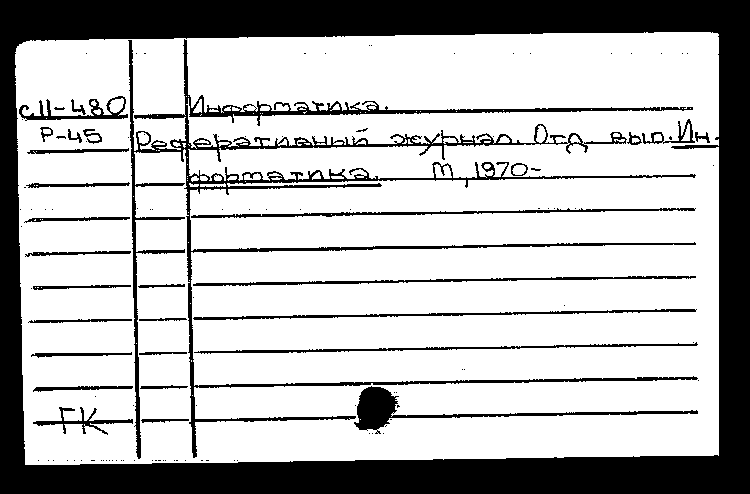 с.II-480 Информатика.
Р-45 Реферативный журнал. Отд. вып. Ин-
форматика. М, 1970-
ГК